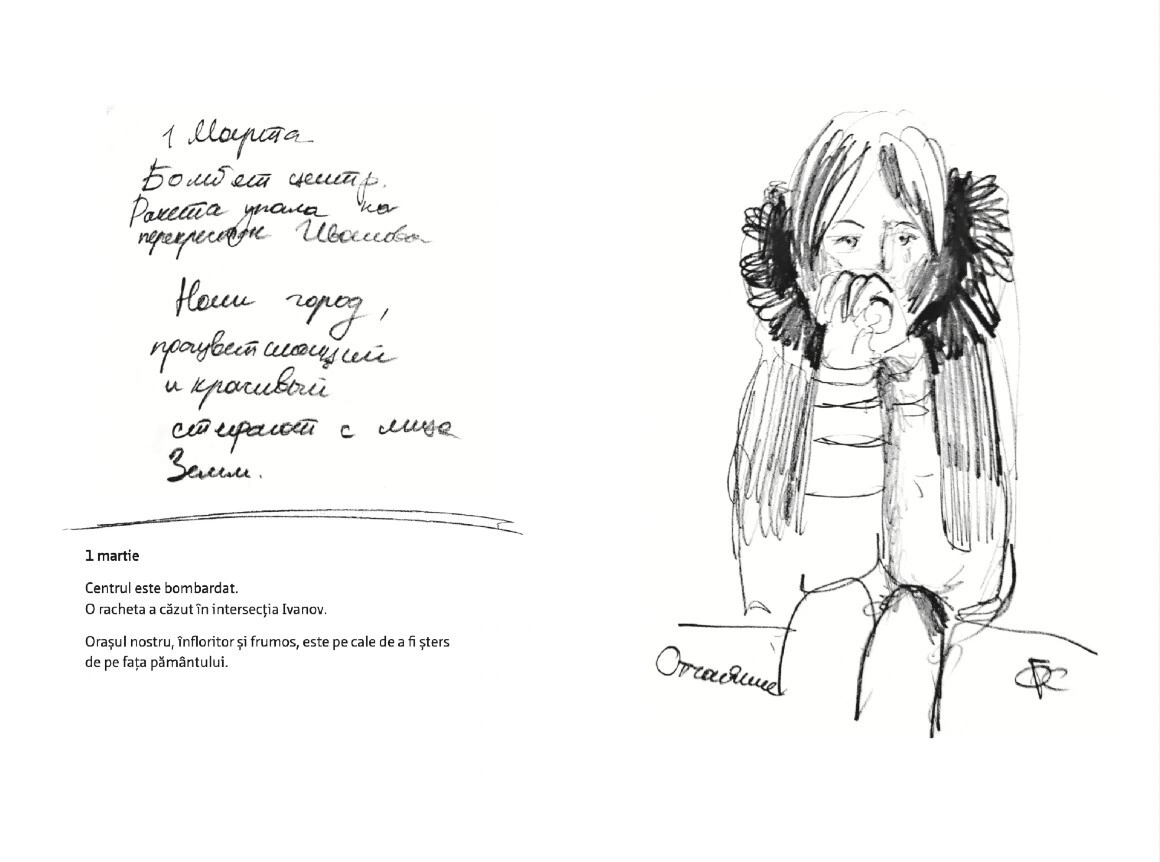 1 Марта
Бомбят центр.
Ракета упала на
перекресток Иванова
Наш город,
процветающий
и красивый
стирают с лица
Земли.
1 martie
Centrul este bombardat.
O racheta a căzut în intersecția Ivanov.
Orașul nostru, înfloritor și frumos, este pe cale de a fi șters
de pe fața pământului.
Отчаяние